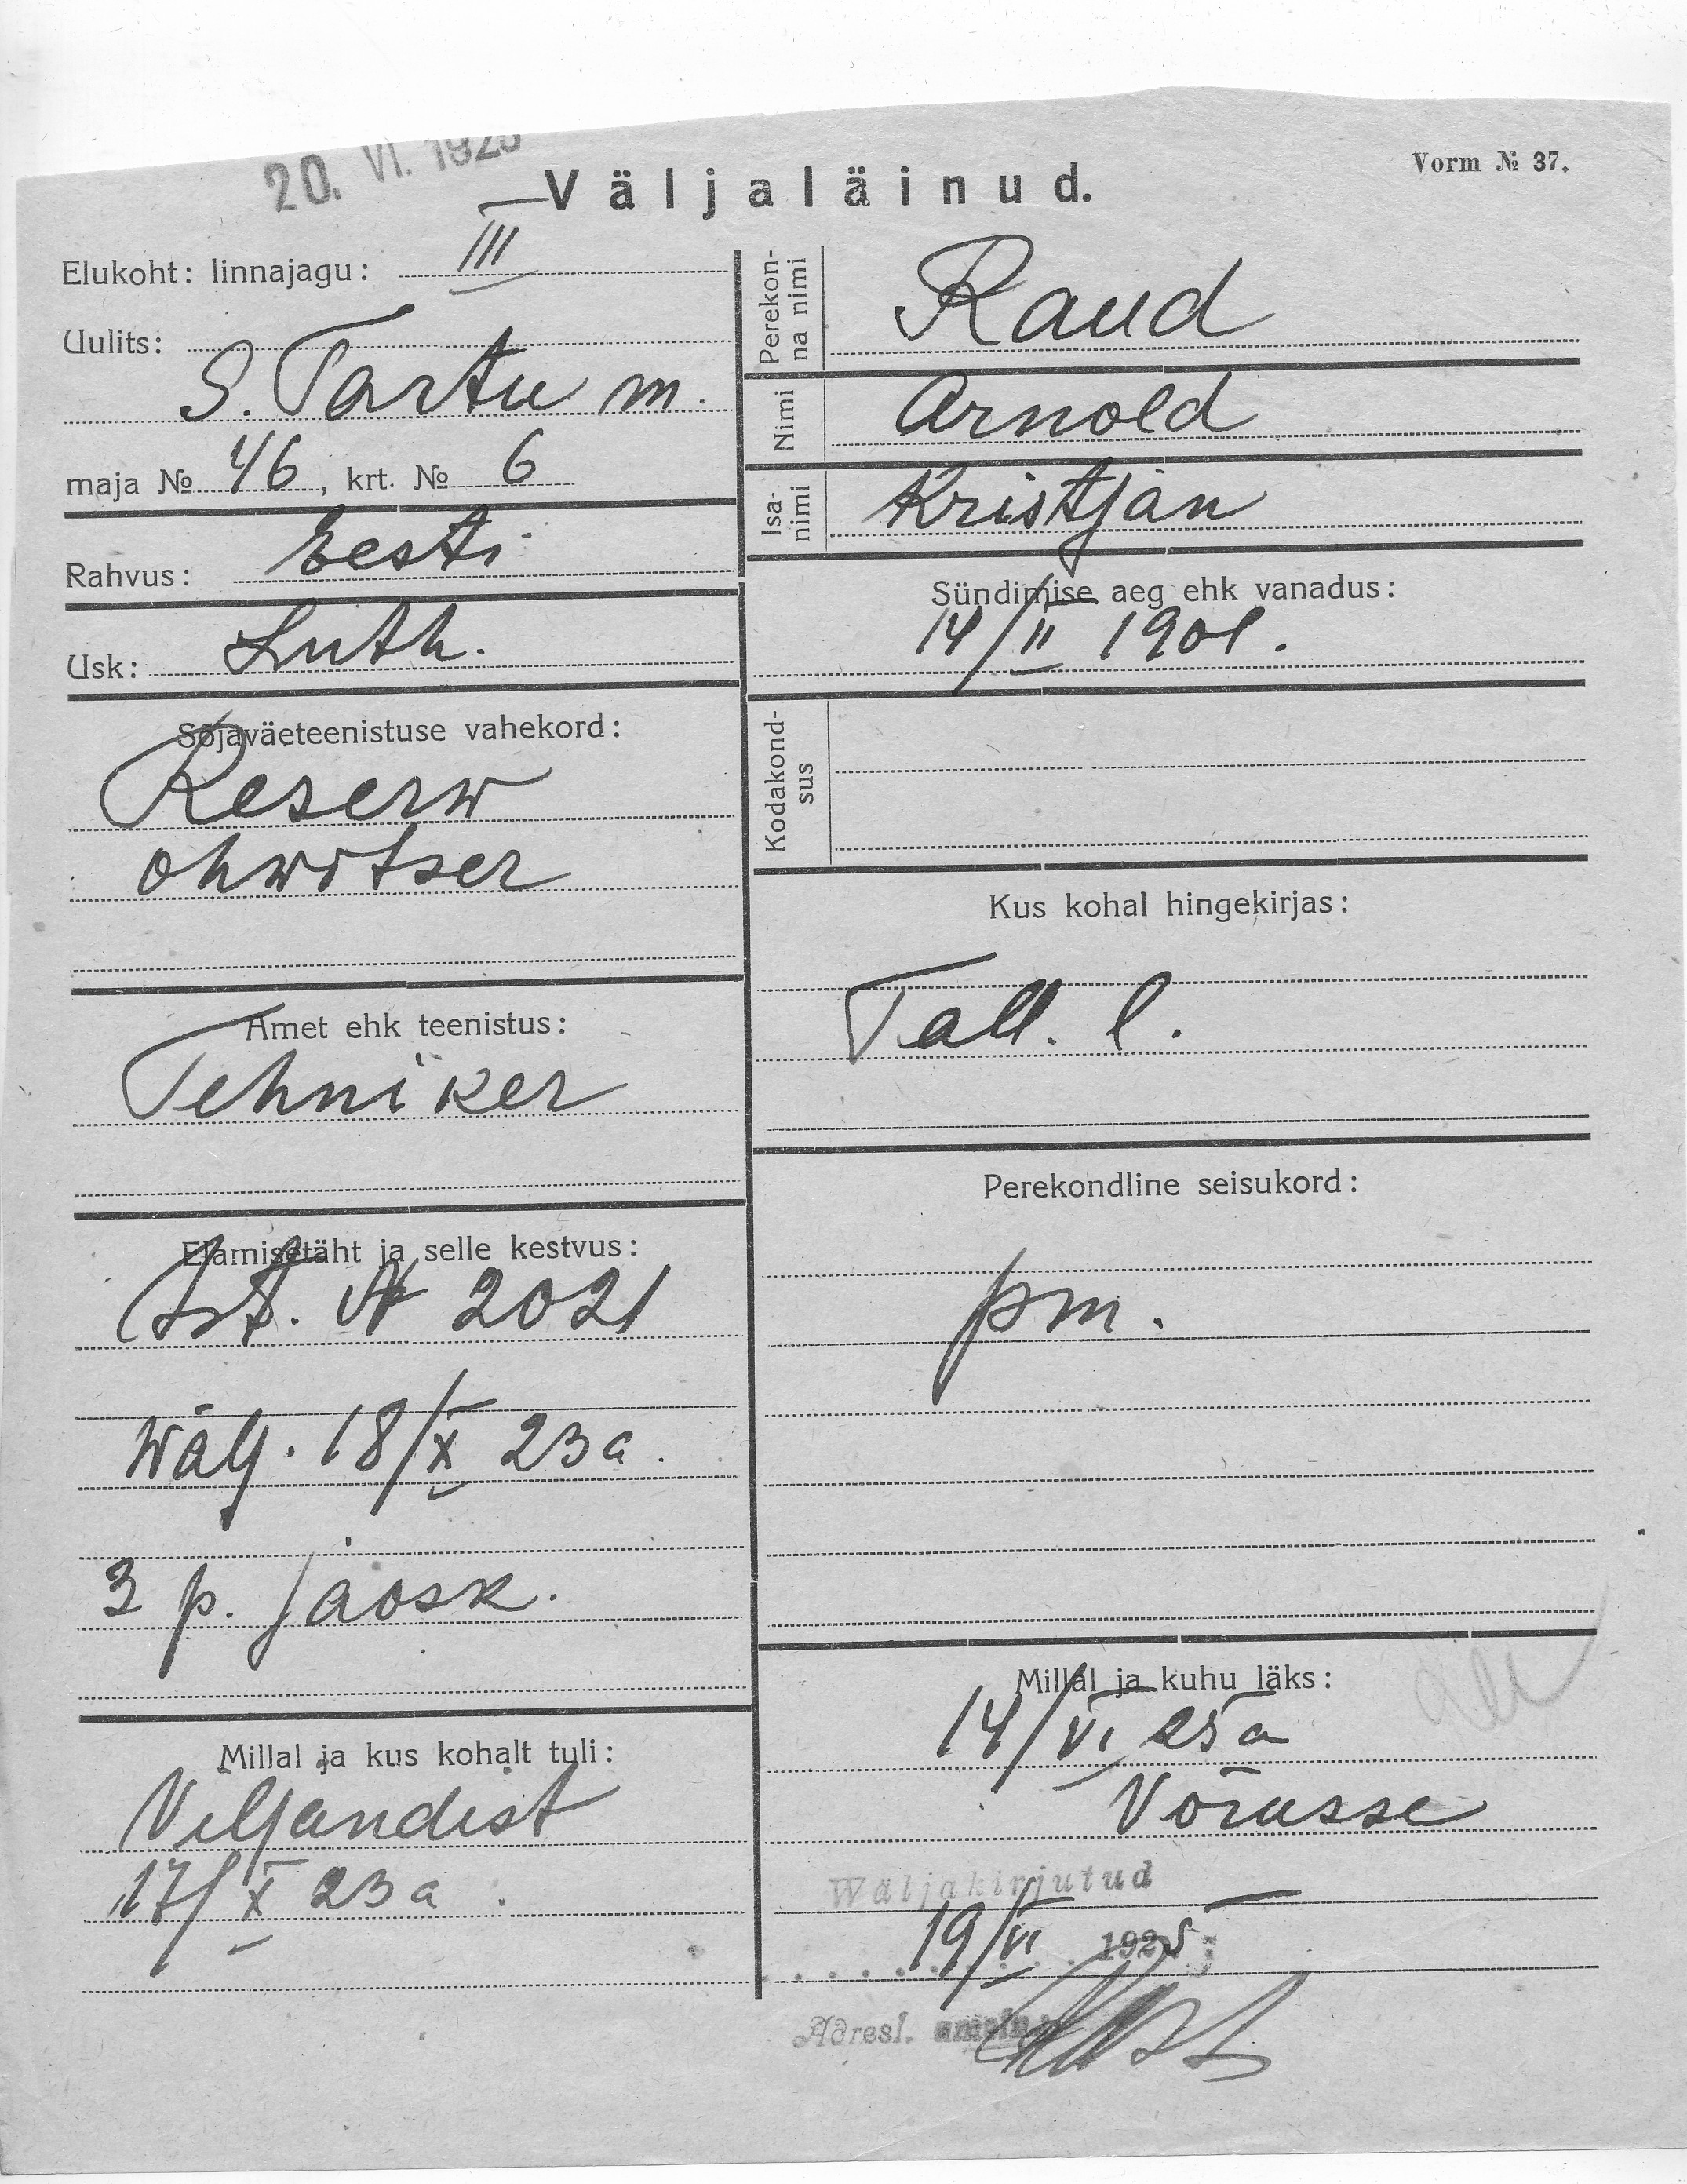 20. VI. 1925
Väljaläinud.
Vorm № 37.
Elukoht: linnajagu: III
Uulits:
S. Tartu m.
maja № 46, krt. № 6
Rahvus: Eesti
Usk: Luth.
Sõjaväeteenistuse vahekord:
Reserw
ohwitser
Amet ehk teenistus:
Tehniker
Elamisetäht ja selle kestvus:
Ist. № 2021
wälj. 18/X 23 a.
3 p. jaosk.
Millal ja kus kohalt tuli:
Viljandist
17/X 23 a.
Perekonna nimi
Raud
Nimi
Arnold
Isanimi
Kristjan
Sündimise aeg ehk vanadus:
14/II 1901.
Kodakondsus
Kus kohal hingekirjas:
Tall. l.
Perekondline seisukord:
pm.
Millal ja kuhu läks:
14/VI 25 a
Võrusse
Wäljakirjutud
19/VI 1925
Adresl.